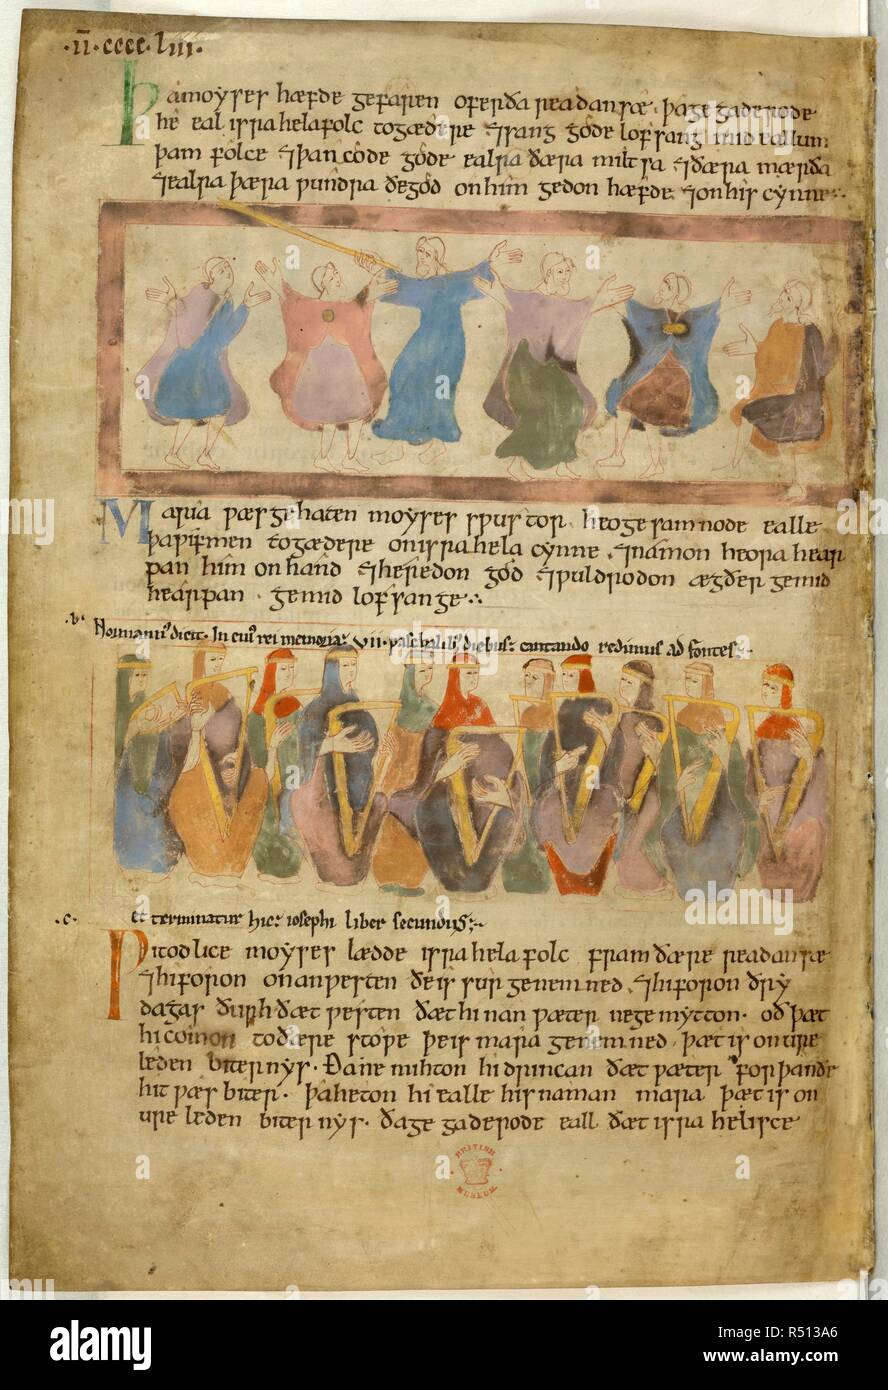 ·II·cccc·liii·
Þa moyses hæfde gefaren ofer ða readan sæ · þa gegaderode
he eal israhela folc togædere ⁊ sang gode lofsang mid eallum
þam folce ⁊ þancode gode ealra ðæra miltsa ⁊ ðæra mærða
⁊ ealra þæra wundra ðe god on him gedon hæfde · ⁊ on his cynne
Maria wæs gehaten moyses swustor · heo gesamnode ealle
þa wifmen togædere on israhela cynne · ⁊ namon heora hear
pan him on hand ⁊ heredon god ⁊ wuldrodon ægðer ge mid
hearpan · ge mid lofsange
Normann' dicit · In cui' rei memoria · VII · paschalib' diebus cantando redimus ad fontes
·c· et terminatur hic iosephi liber secundus
Witodlice moyses lædde israhela folc fram ðære readan sæ
⁊ hi foron on an westen ðe is sur genemned · ⁊ hi foron ðry
dagas ðurh ðæt westen ðæt hi nan wæter ne gemytton · oð þæt
hi comon to ðære stowe þe is mara genemned · þæt is on ure
leden biternys · Ða ne mihton hi drincan ðæt wæter for þan ðe
hit wæs biter · þa heton hi ealle his naman mara þæt is on
ure leden biternys · ða gegaderode eall ðæt israhelisce
BRITISH
MUSEUM
alamy
R513A6
www.alamy.com